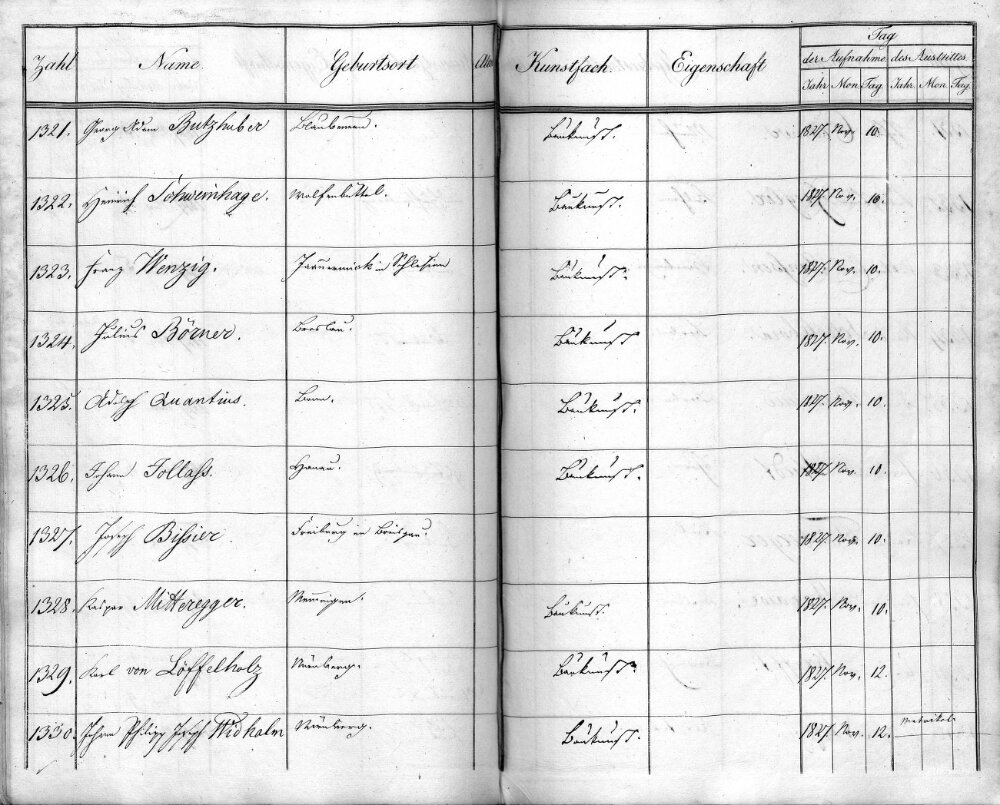 Zahl Name Geburtsort Alter Kunstfach. Eigenschaft Tag
der Aufnahme des Austrittes
Jahr Mon. Tag Jahr. Mon. Tag.
1321. Georg Adam Butzhuber Blaubeuren. Baukunst. 1827. Nov. 10.
1322. Heinrich Schweinhage. Wolfenbüttel. Baukunst. 1827. Nov. 10.
1323. Franz Wenzig. Jauernick in Schlesien Baukunst. 1827. Nov. 10.
1324. Julius Börner. Breslau. Baukunst 1827. Nov. 10.
1325. Adolph Quantius. Bonn. Baukunst. 1827. Nov. 10.
1326. Johann Follaß. Hanau. Baukunst. 1827. Nov. 10.
1327. Joseph Bissier. Freiburg im Breisgau. 1827. Nov. 10.
1328. Kaspar Mitteregger. Baukunst. 1827. Nov. 10.
1329. Karl von Löffelholz Nürnberg. Baukunst. 1827. Nov. 12.
1330. Johann Philipp Joseph Widhalm Nürnberg. Baukunst. 1827. Nov. 12. Matrikel